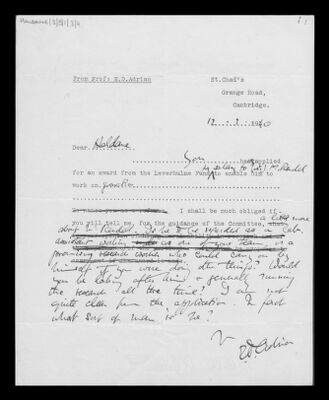 HALDANE/3/5/1/3/4
From Prof: E.D.Adrian
St.Chad's
Grange Road,
Cambridge.
12 - 3 1940
Dear Haldane
You has applied
in relation to Mr. Rendel
for an award from the Leverhulme Fund to enable him to
work on genetics
I shall be much obliged if
you will tell me, for the guidance of the Committee, a little more
about Rendel. Is he to be regarded as a lab.
assistant working as one of your team, or a
promising research worker who could carry on by
himself if you were doing other things? Would
you be looking after him & generally running
the research all the time? I am not
quite clear from the application. In fact
what sort of man is he?
E.D. Adrian